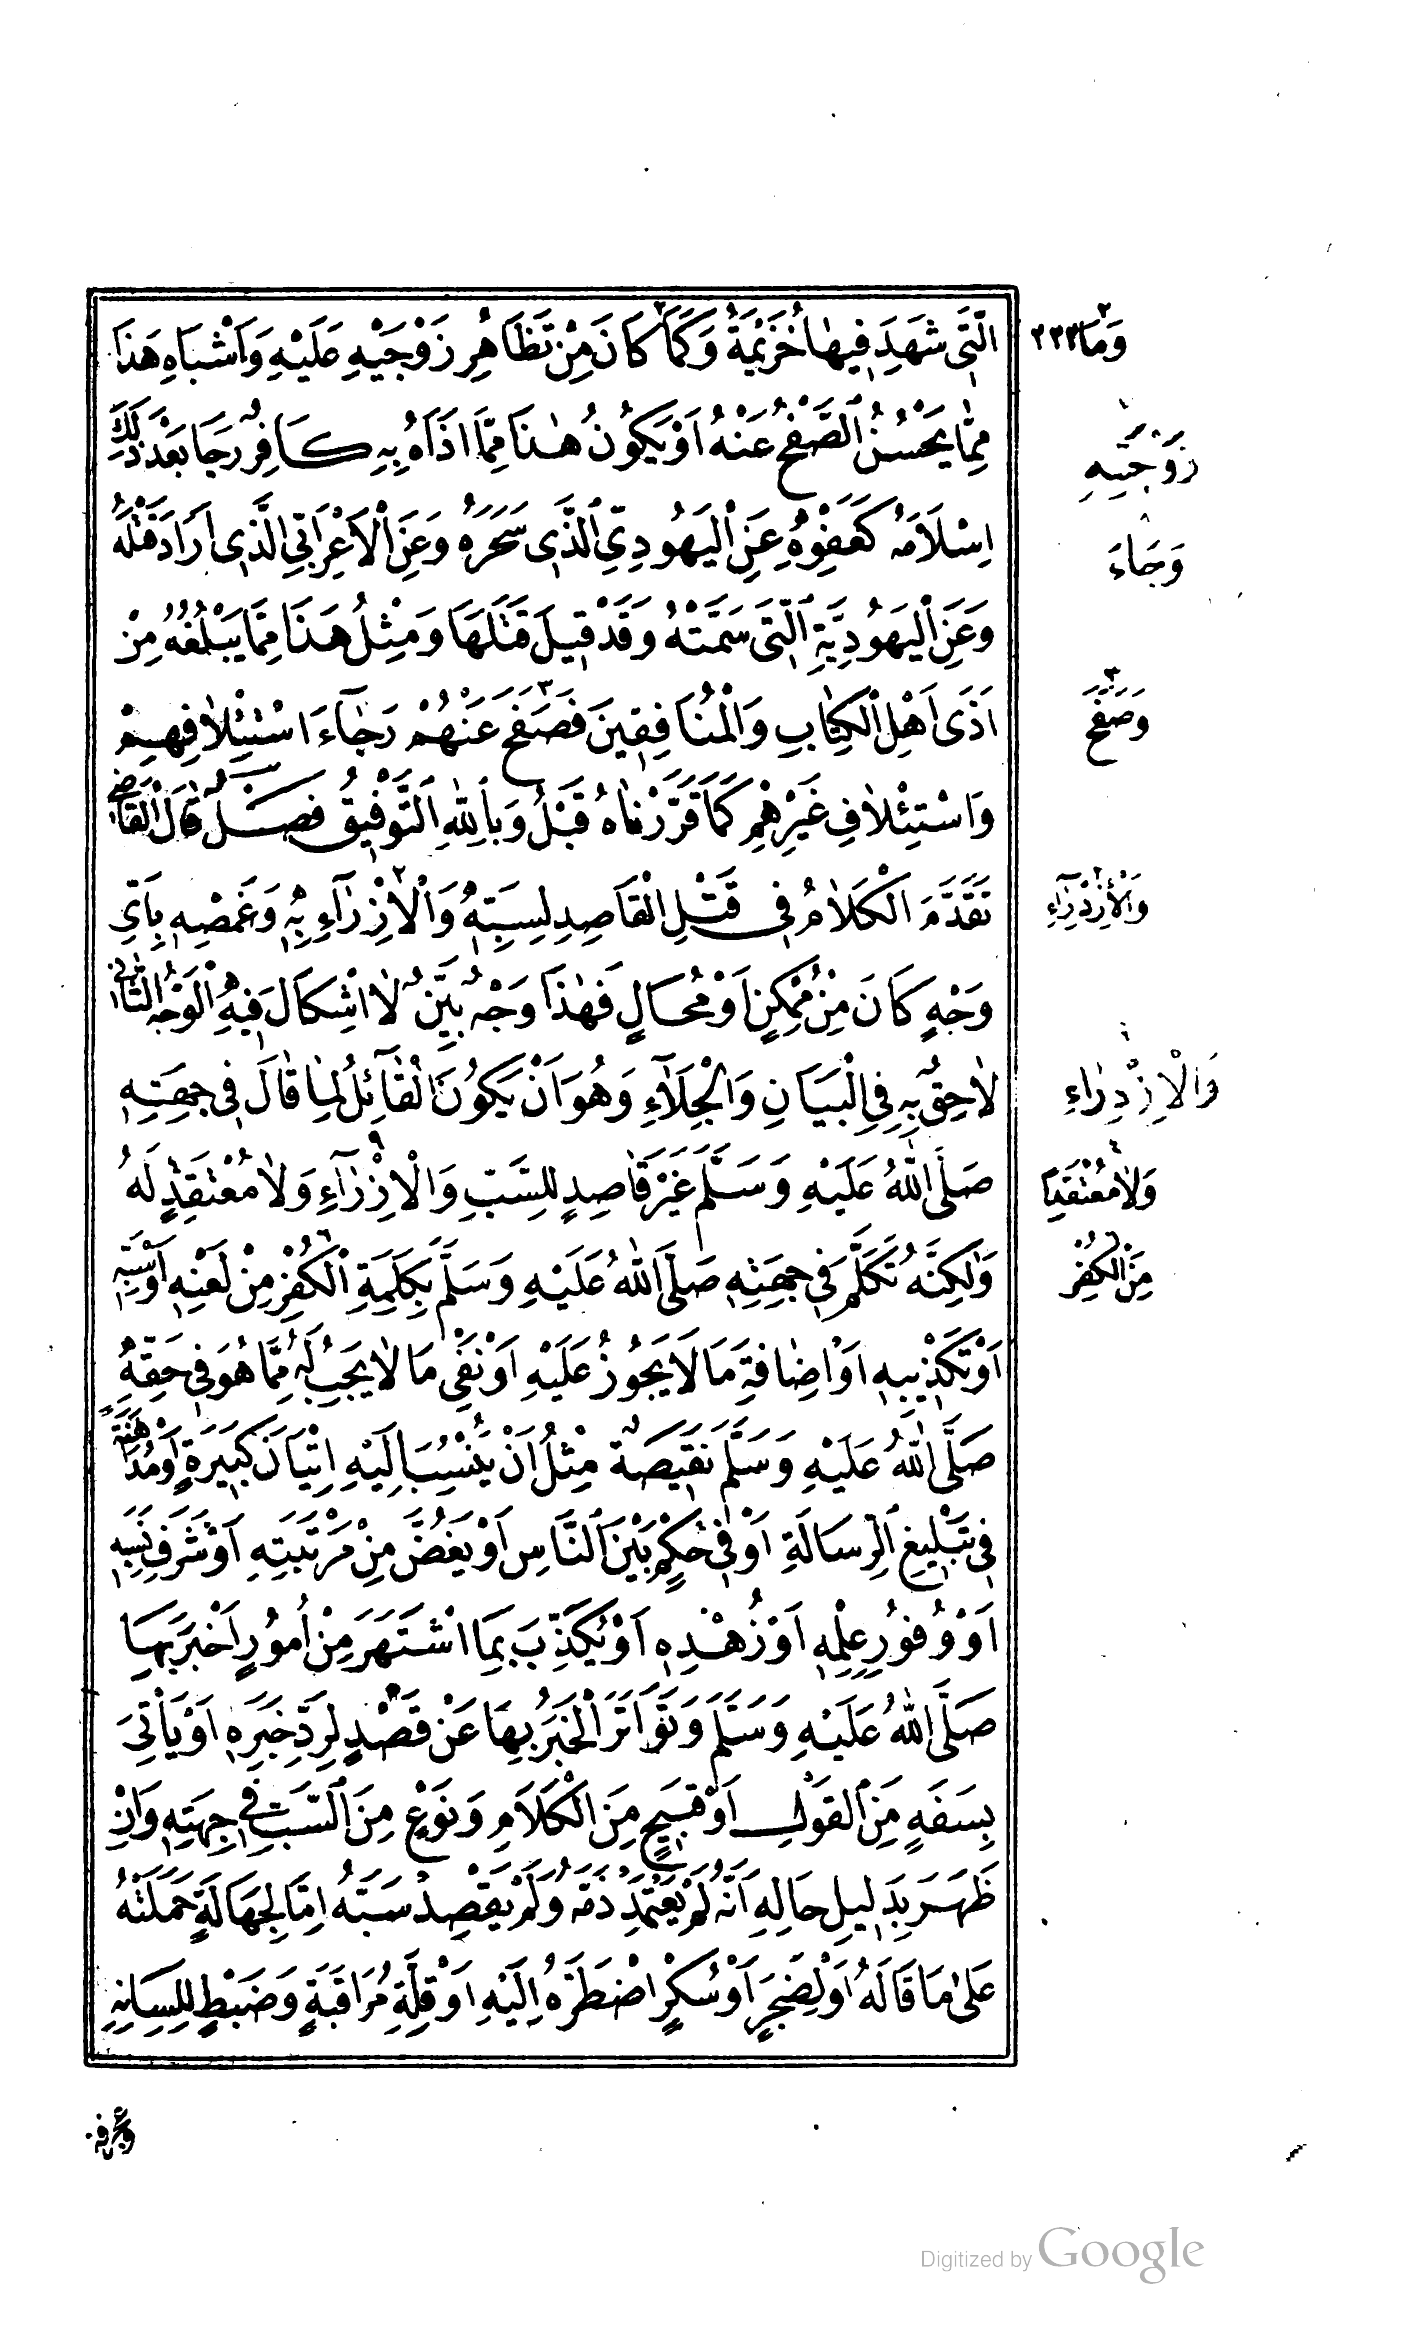 الَّتِي شَهِدَ فِيهَا خُزَيْمَةُ وَكَمَا كَانَ مِنْ تَظَاهُرِ زَوْجَيْهِ عَلَيْهِ وَاَشْبَاهِ هٰذَا
مِمَّا يَحْسُنُ الصَّفْحُ عَنْهُ اَوْ يَكُونُ هٰذَا مِمَّا اٰذَاهُ بِهِ كَافِرٌ رَجَا بَعْدَ ذٰلِكَ
اِسْلَامَهُ كَعَفْوِهِ عَنِ الْيَهُودِيِّ الَّذِي سَحَرَهُ وَعَنِ الْاَعْرَابِيِّ الَّذِي اَرَادَ قَتْلَهُ
وَعَنِ الْيَهُودِيَّةِ الَّتِي سَمَّتْهُ وَقَدْ قِيلَ قَتَلَهَا وَمِثْلُ هٰذَا مِمَّا يَبْلُغُهُ مِنْ
اَذَى اَهْلِ الْكِتَابِ وَالْمُنَافِقِينَ فَصَفَحَ عَنْهُمْ رَجَاءَ اسْتِئْلَافِهِمْ
وَاسْتِئْلَافِ غَيْرِهِمْ كَمَا قَرَّرْنَاهُ قَبْلُ وَبِاللّٰهِ التَّوْفِيقُ فَصْلٌ قَالَ الْقَاضِي
تَقَدَّمَ الْكَلَامُ فِي قَتْلِ الْقَاصِدِ لِسَبِّهِ وَالْاِزْرَاءِ بِهِ وَغَمْصِهِ بِاَيِّ
وَجْهٍ كَانَ مِنْ مُمْكِنٍ اَوْ مُحَالٍ فَهٰذَا وَجْهٌ بَيِّنٌ لَا اِشْكَالَ فِيهِ الْوَجْهُ الثَّانِي
لَاحِقٌ بِهِ فِي الْبَيَانِ وَالْجَلَاءِ وَهُوَ اَنْ يَكُونَ الْقَائِلُ لِمَا قَالَ فِي جِهَتِهِ
صَلَّى اللّٰهُ عَلَيْهِ وَسَلَّمَ غَيْرَ قَاصِدٍ لِلسَّبِّ وَالْاِزْرَاءِ وَلَا مُعْتَقِدٍ لَهُ
وَلٰكِنَّهُ تَكَلَّمَ فِي جِهَتِهِ صَلَّى اللّٰهُ عَلَيْهِ وَسَلَّمَ بِكَلِمَةِ الْكُفْرِ مِنْ لَعْنِهِ اَوْ سَبِّهِ
اَوْ تَكْذِيبِهِ اَوْ اِضَافَةِ مَا لَا يَجُوزُ عَلَيْهِ اَوْ نَفْيِ مَا لَا يَجِبُ لَهُ مِمَّا هُوَ فِي حَقِّهِ
صَلَّى اللّٰهُ عَلَيْهِ وَسَلَّمَ نَقِيصَةٌ مِثْلُ اَنْ يَنْسُبَ اِلَيْهِ اِتْيَانَ كَبِيرَةٍ اَوْ مُدَاهَنَةٍ
فِي تَبْلِيغِ الرِّسَالَةِ اَوْ فِي حُكْمٍ بَيْنَ النَّاسِ اَوْ يَغُضَّ مِنْ مَرْتَبَتِهِ اَوْ شَرَفِ نَسَبِهِ
اَوْ وُفُورِ عِلْمِهِ اَوْ زُهْدِهِ اَوْ يُكَذِّبَ بِمَا اشْتَهَرَ مِنْ اُمُورٍ اَخْبَرَ بِهَا
صَلَّى اللّٰهُ عَلَيْهِ وَسَلَّمَ وَتَوَاتَرَ الْخَبَرُ بِهَا عَنْ قَصْدٍ لِرَدِّ خَبَرِهِ اَوْ يَاْتِيَ
بِسَفَهٍ مِنَ الْقَوْلِ اَوْ قَبِيحٍ مِنَ الْكَلَامِ وَنَوْعٍ مِنَ السَّبِّ فِي جِهَتِهِ وَاِنْ
ظَهَرَ بِدَلِيلِ حَالِهِ اَنَّهُ لَمْ يَعْتَمِدْ ذَمَّهُ وَلَمْ يَقْصِدْ سَبَّهُ اِمَّا لِجَهَالَةٍ حَمَلَتْهُ
عَلٰى مَا قَالَهُ اَوْ لِضَجَرٍ اَوْ سُكْرٍ اضْطَرَّهُ اِلَيْهِ اَوْ قِلَّةِ مُرَاقَبَةٍ وَضَبْطٍ لِلِسَانِهِ
٢
وَمَا ٢٣٣
زَوْجَتِهِ
وَجَاءَ
٣
وَصَفَحَ
وَالْاِزْدِرَاءِ
وَالْاِزْدِرَاءِ
وَلَا مُعْتَقِدًا
مِنَ الْكُفْرِ
وعجرفة
Digitized by Google